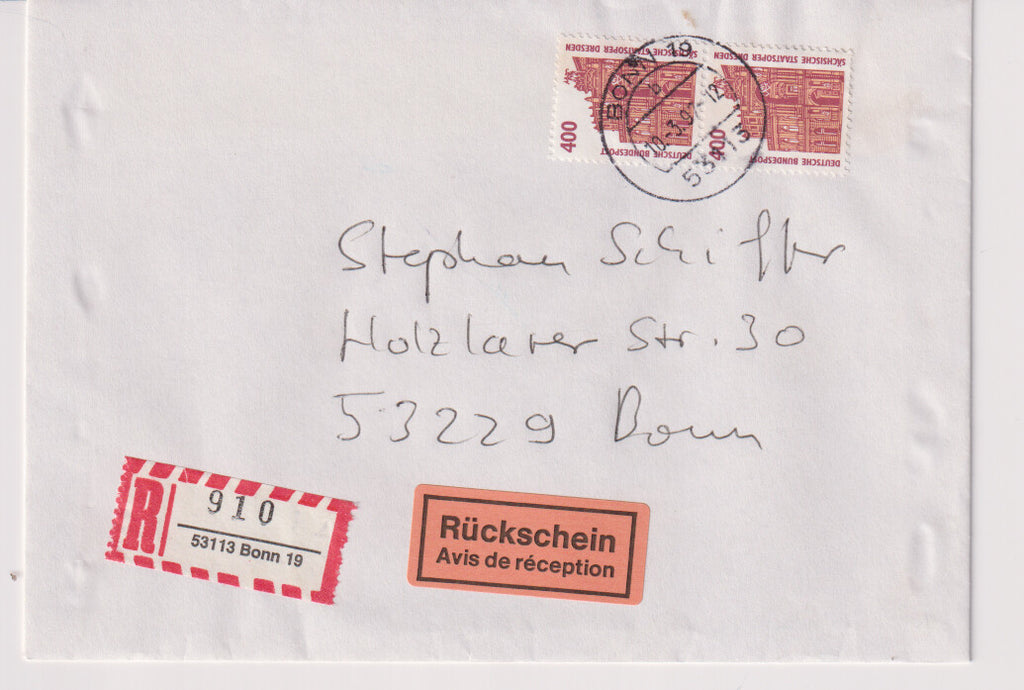 SÄCHSISCHE STAATSOPER DRESDEN
400
DEUTSCHE BUNDESPOST
SÄCHSISCHE STAATSOPER DRESDEN
400
DEUTSCHE BUNDESPOST
BONN 19
b
53113
Stephan Schiffer
Holzlarer Str. 30
53229 Bonn
R
910
53113 Bonn 19
Rückschein
Avis de réception